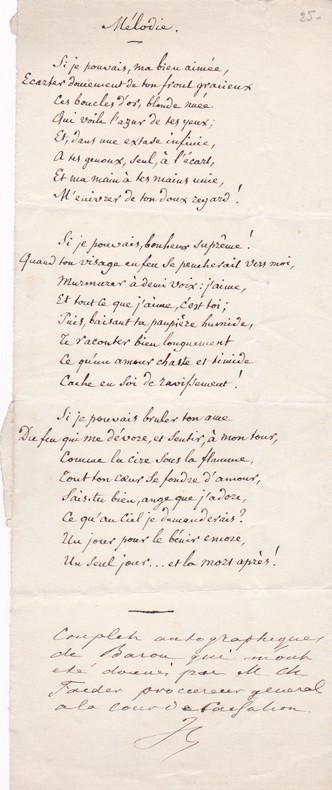 25-
Mélodie.
Si je pouvais, ma bien aimée,
Ecarter doucement de ton front gracieux
Ces boucles d'or, blonde nuée
Qui voile l'azur de tes yeux;
Et, dans une extase infinie,
A tes genoux, seul, à l'écart,
Et ma main à tes mains unie,
M'enivrer de ton doux regard!
Si je pouvais, bonheur suprême!
Quand ton visage en feu se pencherait vers moi,
Murmurer à demi voix: j'aime,
Et tout ce que j'aime, c'est toi;
Puis, baisant ta paupière humide,
Te raconter bien longuement
Ce qu'un amour chaste et timide
Cache en soi de ravissement!
Si je pouvais bruler ton ame
Du feu qui me dévore, et sentir, à mon tour,
Comme la cire sous la flamme,
Tout ton cœur se fondre d'amour,
Sais-tu bien, ange que j'adore,
Ce qu'au Ciel je demanderais?
Un jour pour le bénir encore,
Un seul jour... et la mort après!
Couplets autographiques
de qui m'ont
été donnés par M Ch
procureur général
a la cour de Cassation